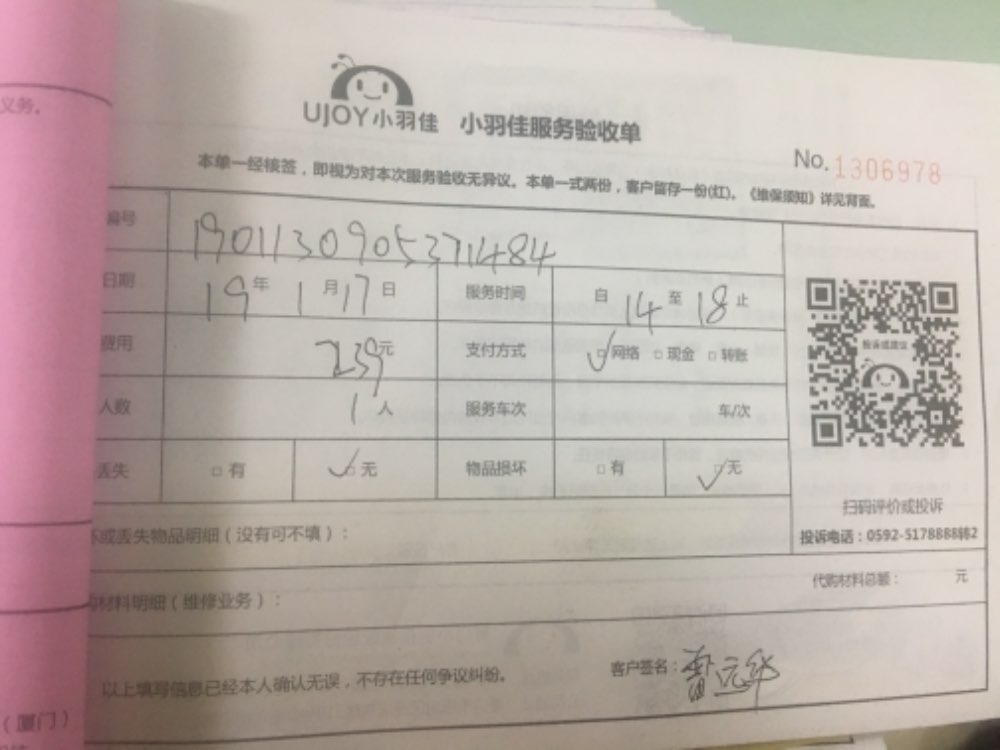 义务。
UJOY小羽佳 小羽佳服务验收单
No.1306978
本单一经核签，即视为对本次服务验收无异议。本单一式两份，客户留存一份(红)。《维保须知》详见背面。
编号 19011309053711484
日期 19年1月17日 服务时间 自14至18止
费用 239元 支付方式 网络 现金 转账
人数 1人 服务车次 车/次
丢失 有 无 物品损坏 有 无
投诉或建议
扫码评价或投诉
投诉电话：0592-5178888转2
坏或丢失物品明细（没有可不填）：
购材料明细（维修业务）：
代购材料总额： 元
以上填写信息已经本人确认无误，不存在任何争议纠纷。
客户签名：曹远华
（厦门）